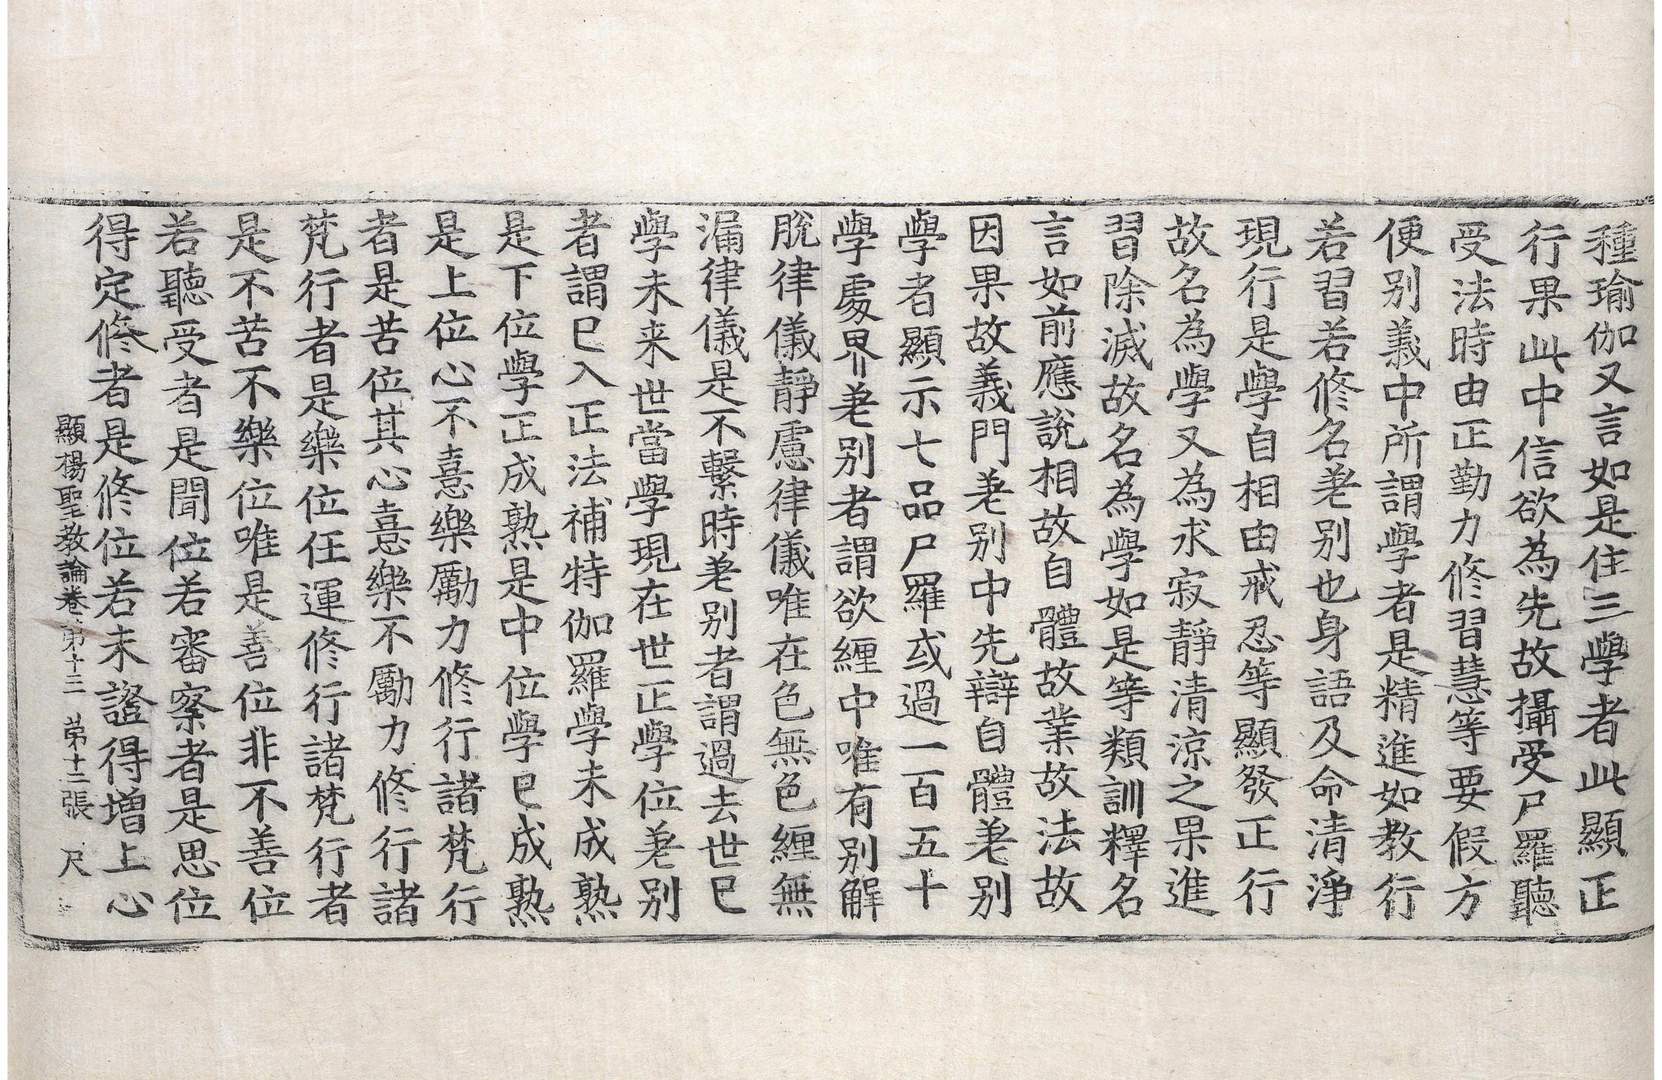 種瑜伽又言如是住三學者此顯正
行果此中信欲為先故攝受尸羅聽
受法時由正勤力修習慧等要假方
便別義中所謂學者是精進如教行
若習若修名差別也身語及命清淨
現行是學自相由戒忍等顯發正行
故名為學又為求寂靜清涼之果進
習除滅故名為學如是等類訓釋名
言如前應說相故自體故業故法故
因果故義門差別中先辯自體差別
學者顯示七品尸羅或過一百五十
學處界差別者謂欲纏中唯有別解
脫律儀靜慮律儀唯在色無色纏無
漏律儀是不繫時差別者謂過去世已
學未来世當學現在世正學位差別
者謂已入正法補特伽羅學未成熟
是下位學正成熟是中位學已成熟
是上位心不憙樂勵力修行諸梵行
者是苦位其心憙樂不勵力修行諸
梵行者是樂位任運修行諸梵行者
是不苦不樂位唯是善位非不善位
若聽受者是聞位若審察者是思位
得定修者是修位若未證得增上心
顯揚聖教論卷第十三 第十二張 尺